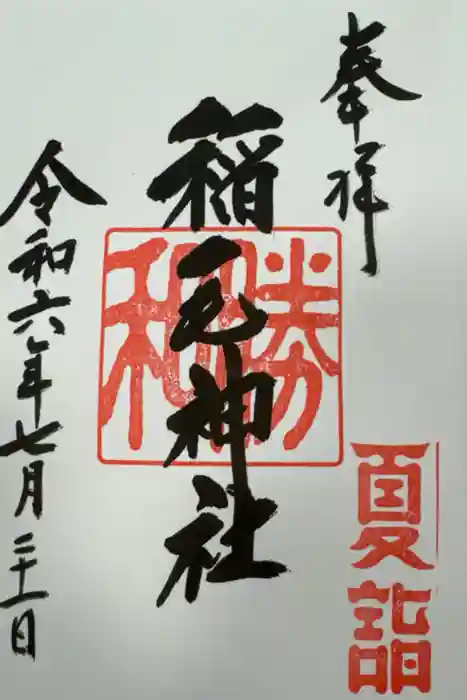 奉拝
夏詣
勝和
稲毛神社
令和六年七月二十一日